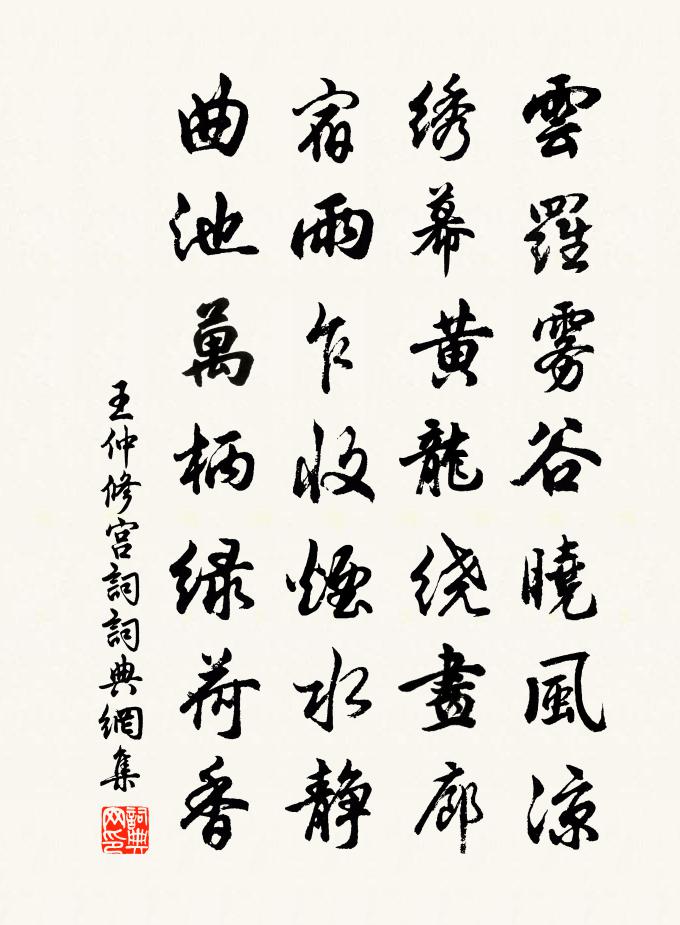 雲羅霧谷曉風涼
绣幕黄龍绕畫廊
宿雨乍收煙水静
曲池萬柄绿荷香
王仲修宫詞詞典網集
詞典网印